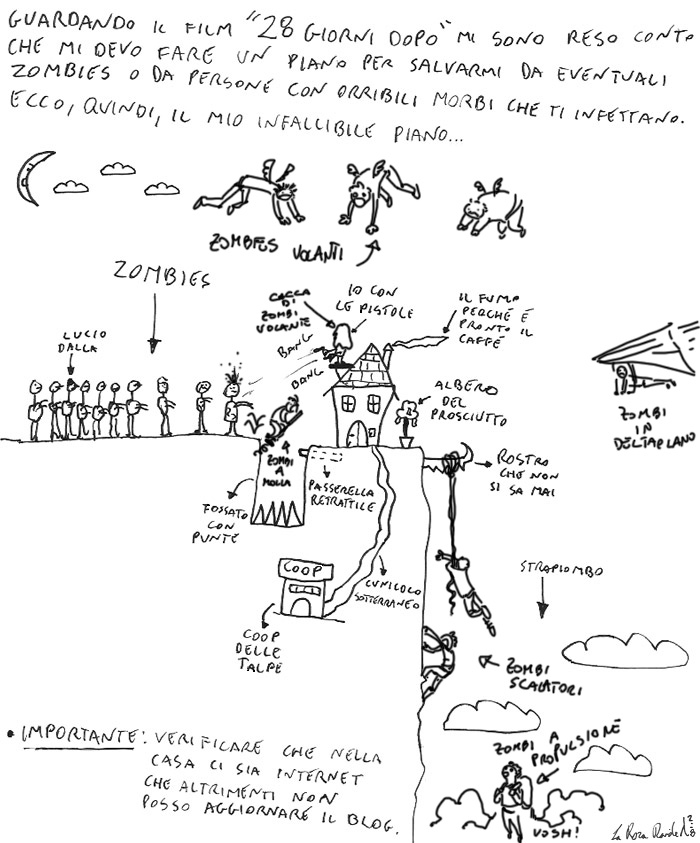 GUARDANDO IL FILM "28 GIORNI DOPO" MI SONO RESO CONTO
CHE MI DEVO FARE UN PIANO PER SALVARMI DA EVENTUALI
ZOMBIES O DA PERSONE CON ORRIBILI MORBI CHE TI INFETTANO.
ECCO, QUINDI, IL MIO INFALLIBILE PIANO...
ZOMBIES VOLANTI
ZOMBIES
LUCIO
DALLA
CACCA
DI
ZOMBI
VOLANTE
IO CON
LE PISTOLE
IL FUMO
PERCHÉ È
PRONTO IL
CAFFÈ
BANG
BANG
ALBERO
DEL
PROSCIUTTO
ZOMBI
IN
DELTAPLANO
ZOMBI
A
MOLLA
FOSSATO
CON
PUNTE
PASSERELLA
RETRATTILE
ROSTRO
CHE NON
SI SA MAI
COOP
CUNICOLO
SOTTERRANEO
COOP
DELLE
TALPE
STRAPIOMBO
ZOMBI
SCALATORI
ZOMBI A
PROPULSIONE
VOSH!
• IMPORTANTE: VERIFICARE CHE NELLA
CASA CI SIA INTERNET
CHE ALTRIMENTI NON
POSSO AGGIORNARE IL BLOG.